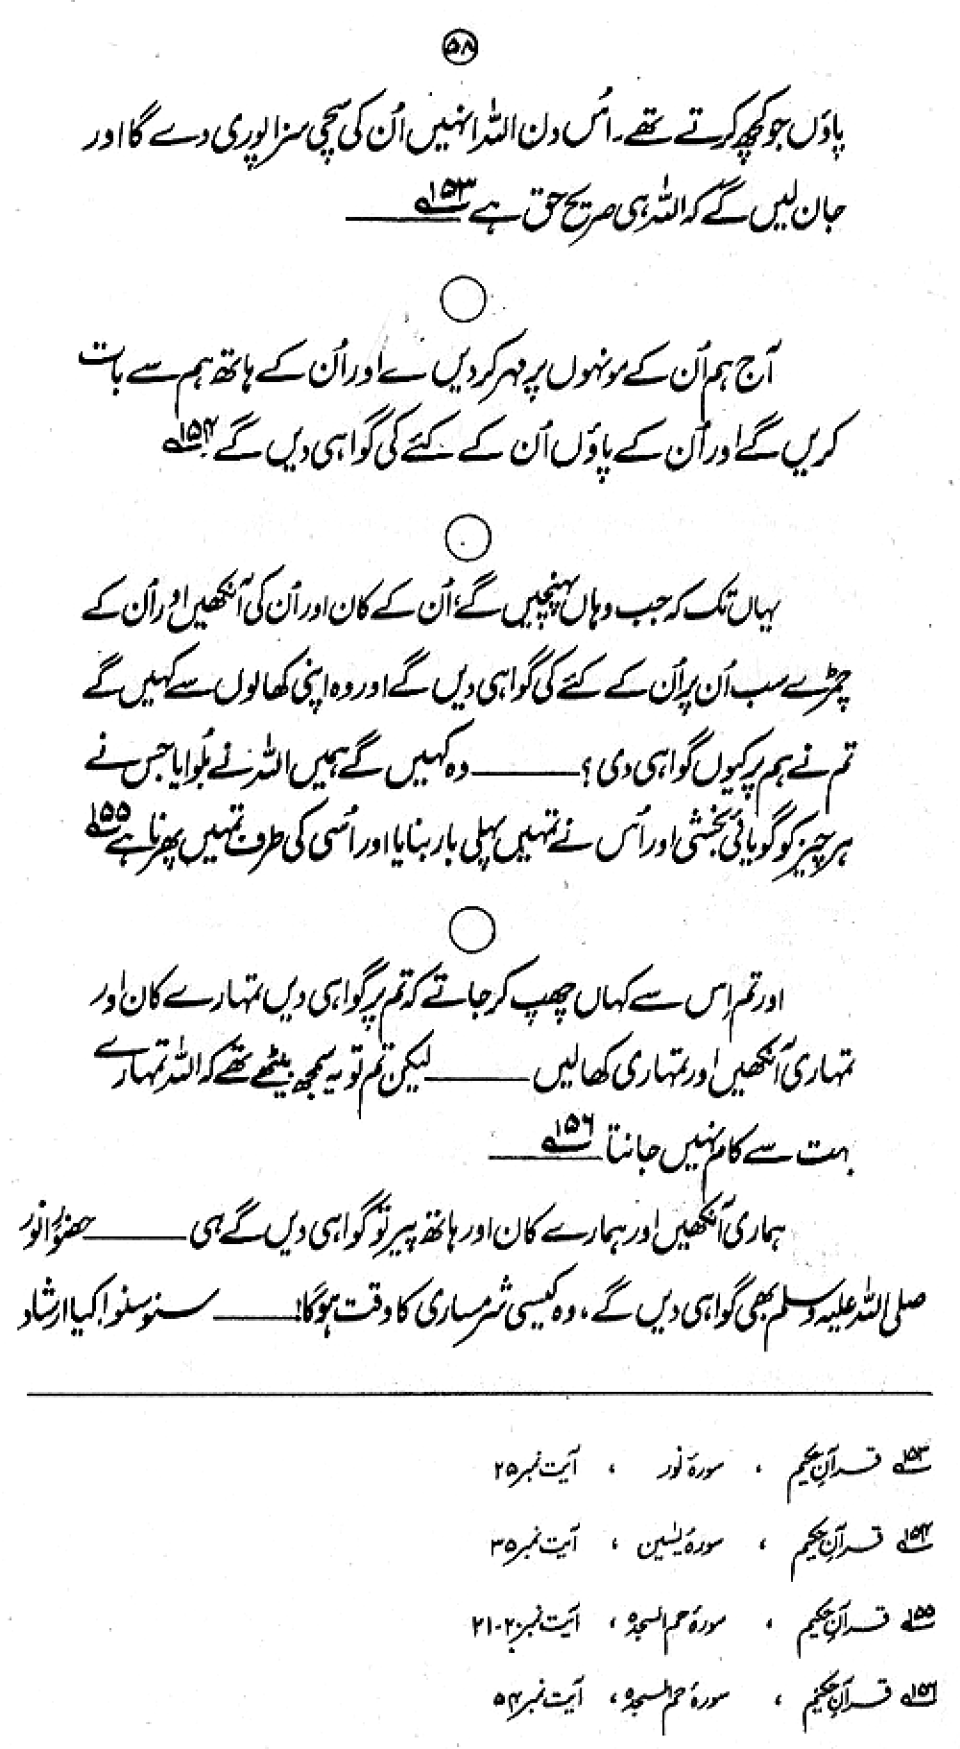 ۵۸
پاؤں جو کچھ کرتے تھے۔ اُس دن اللہ انہیں اُن کی سچی سزا پوری دے گا اور
جان لیں گے کہ اللہ ہی صریح حق ہے ۱۵۳؎ ــــــــ
آج ہم اُن کے مونہوں پر مہر کر دیں گے اور اُن کے ہاتھ ہم سے بات
کریں گے اور اُن کے پاؤں اُن کے کئے کی گواہی دیں گے ۱۵۴؎
یہاں تک کہ جب وہاں پہنچیں گے، اُن کے کان اور اُن کی آنکھیں اور اُن کے
چمڑے سب اُن پر اُن کے کئے کی گواہی دیں گے اور وہ اپنی کھالوں سے کہیں گے
تم نے ہم پر کیوں گواہی دی؟ ــــــــ وہ کہیں گے ہمیں اللہ نے بُلوایا جس نے
ہر چیز کو گویائی بخشی اور اُس نے تمہیں پہلی بار بنایا اور اُسی کی طرف تمہیں پھرنا ہے ۱۵۵؎
اور تم اِس سے کہاں چھپ کر جاتے کہ تم پر گواہی دیں تمہارے کان اور
تمہاری آنکھیں اور تمہاری کھالیں ــــــــ لیکن تم تو یہ سمجھ بیٹھے تھے کہ اللہ تمہارے
بہت سے کام نہیں جانتا ۱۵۶؎ ــــــــ
ہماری آنکھیں اور ہمارے کان اور ہاتھ پیر تو گواہی دیں گے ہی ــــــــ حضورِ انور
صلی اللہ علیہ وسلم بھی گواہی دیں گے، وہ کیسی شرمساری کا وقت ہوگا! ــــــــ سنو سنو! کیا ارشاد
۱۵۳؎ قرآنِ حکیم ، سورۂ نور ، آیت نمبر ۲۵
۱۵۴؎ قرآنِ حکیم ، سورۂ یٰسین ، آیت نمبر ۳۵
۱۵۵؎ قرآنِ حکیم ، سورۂ حم السجدہ ، آیت نمبر ۲۰-۲۱
۱۵۶؎ قرآنِ حکیم ، سورۂ حم السجدہ ، آیت نمبر ۵۴